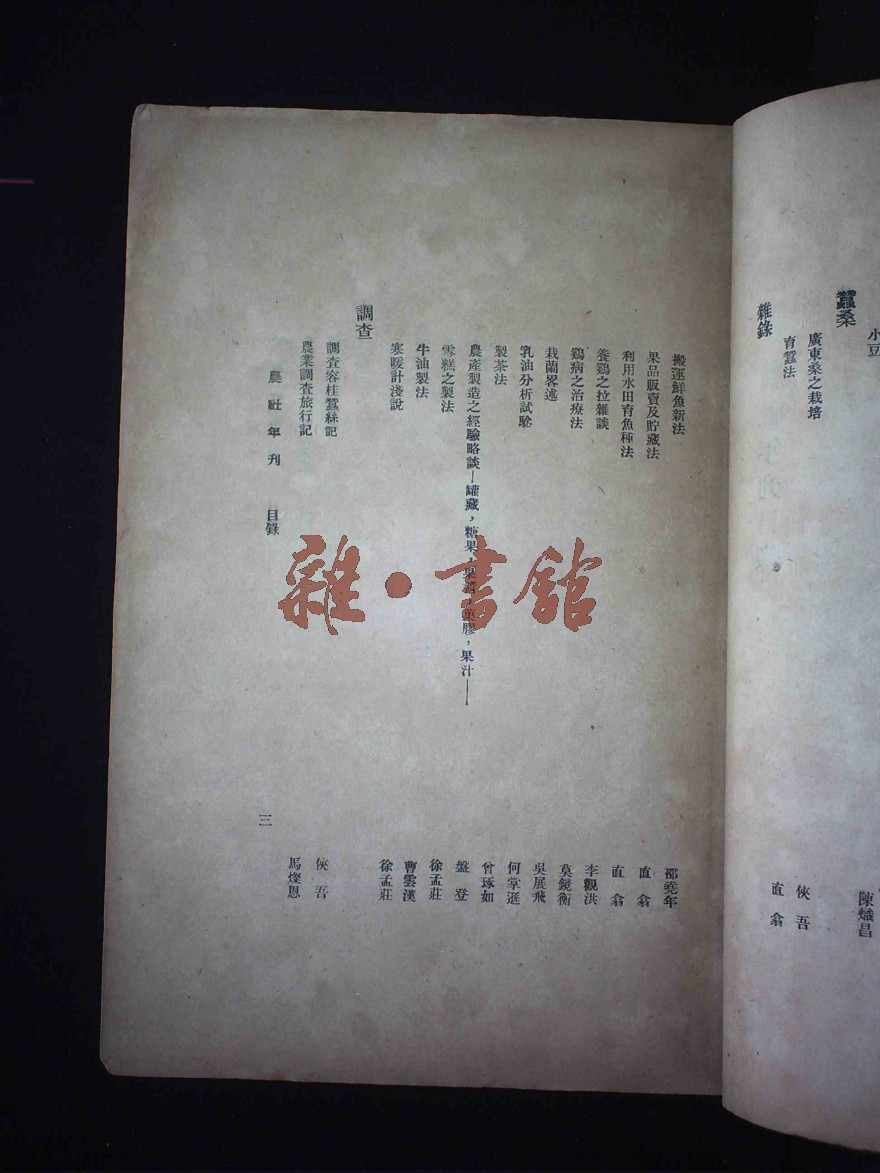 小豆
陳熾昌
蠶桑
廣東桑之栽培
俠吾
育蠶法
直翁
雜錄
搬運鮮魚新法
鄧堯年
果品販賣及貯藏法
直翁
利用水田育魚種法
直翁
養鷄之拉雜談
李觀洪
鷄病之治療法
莫鏡衡
栽蘭畧述
吳展飛
乳油分析試騐
何掌遜
製茶法
曾琢如
農產製造之經驗略談—罐藏，糖果，果醬，菓膠，果汁——
盤登
雪糕之製法
徐孟莊
牛油製法
曹雲漢
寒暖計淺說
徐孟莊
調查
調查容桂蠶絲記
俠吾
農業調查旅行記
馬燦恩
農社年刊 目錄
三
雜·書館